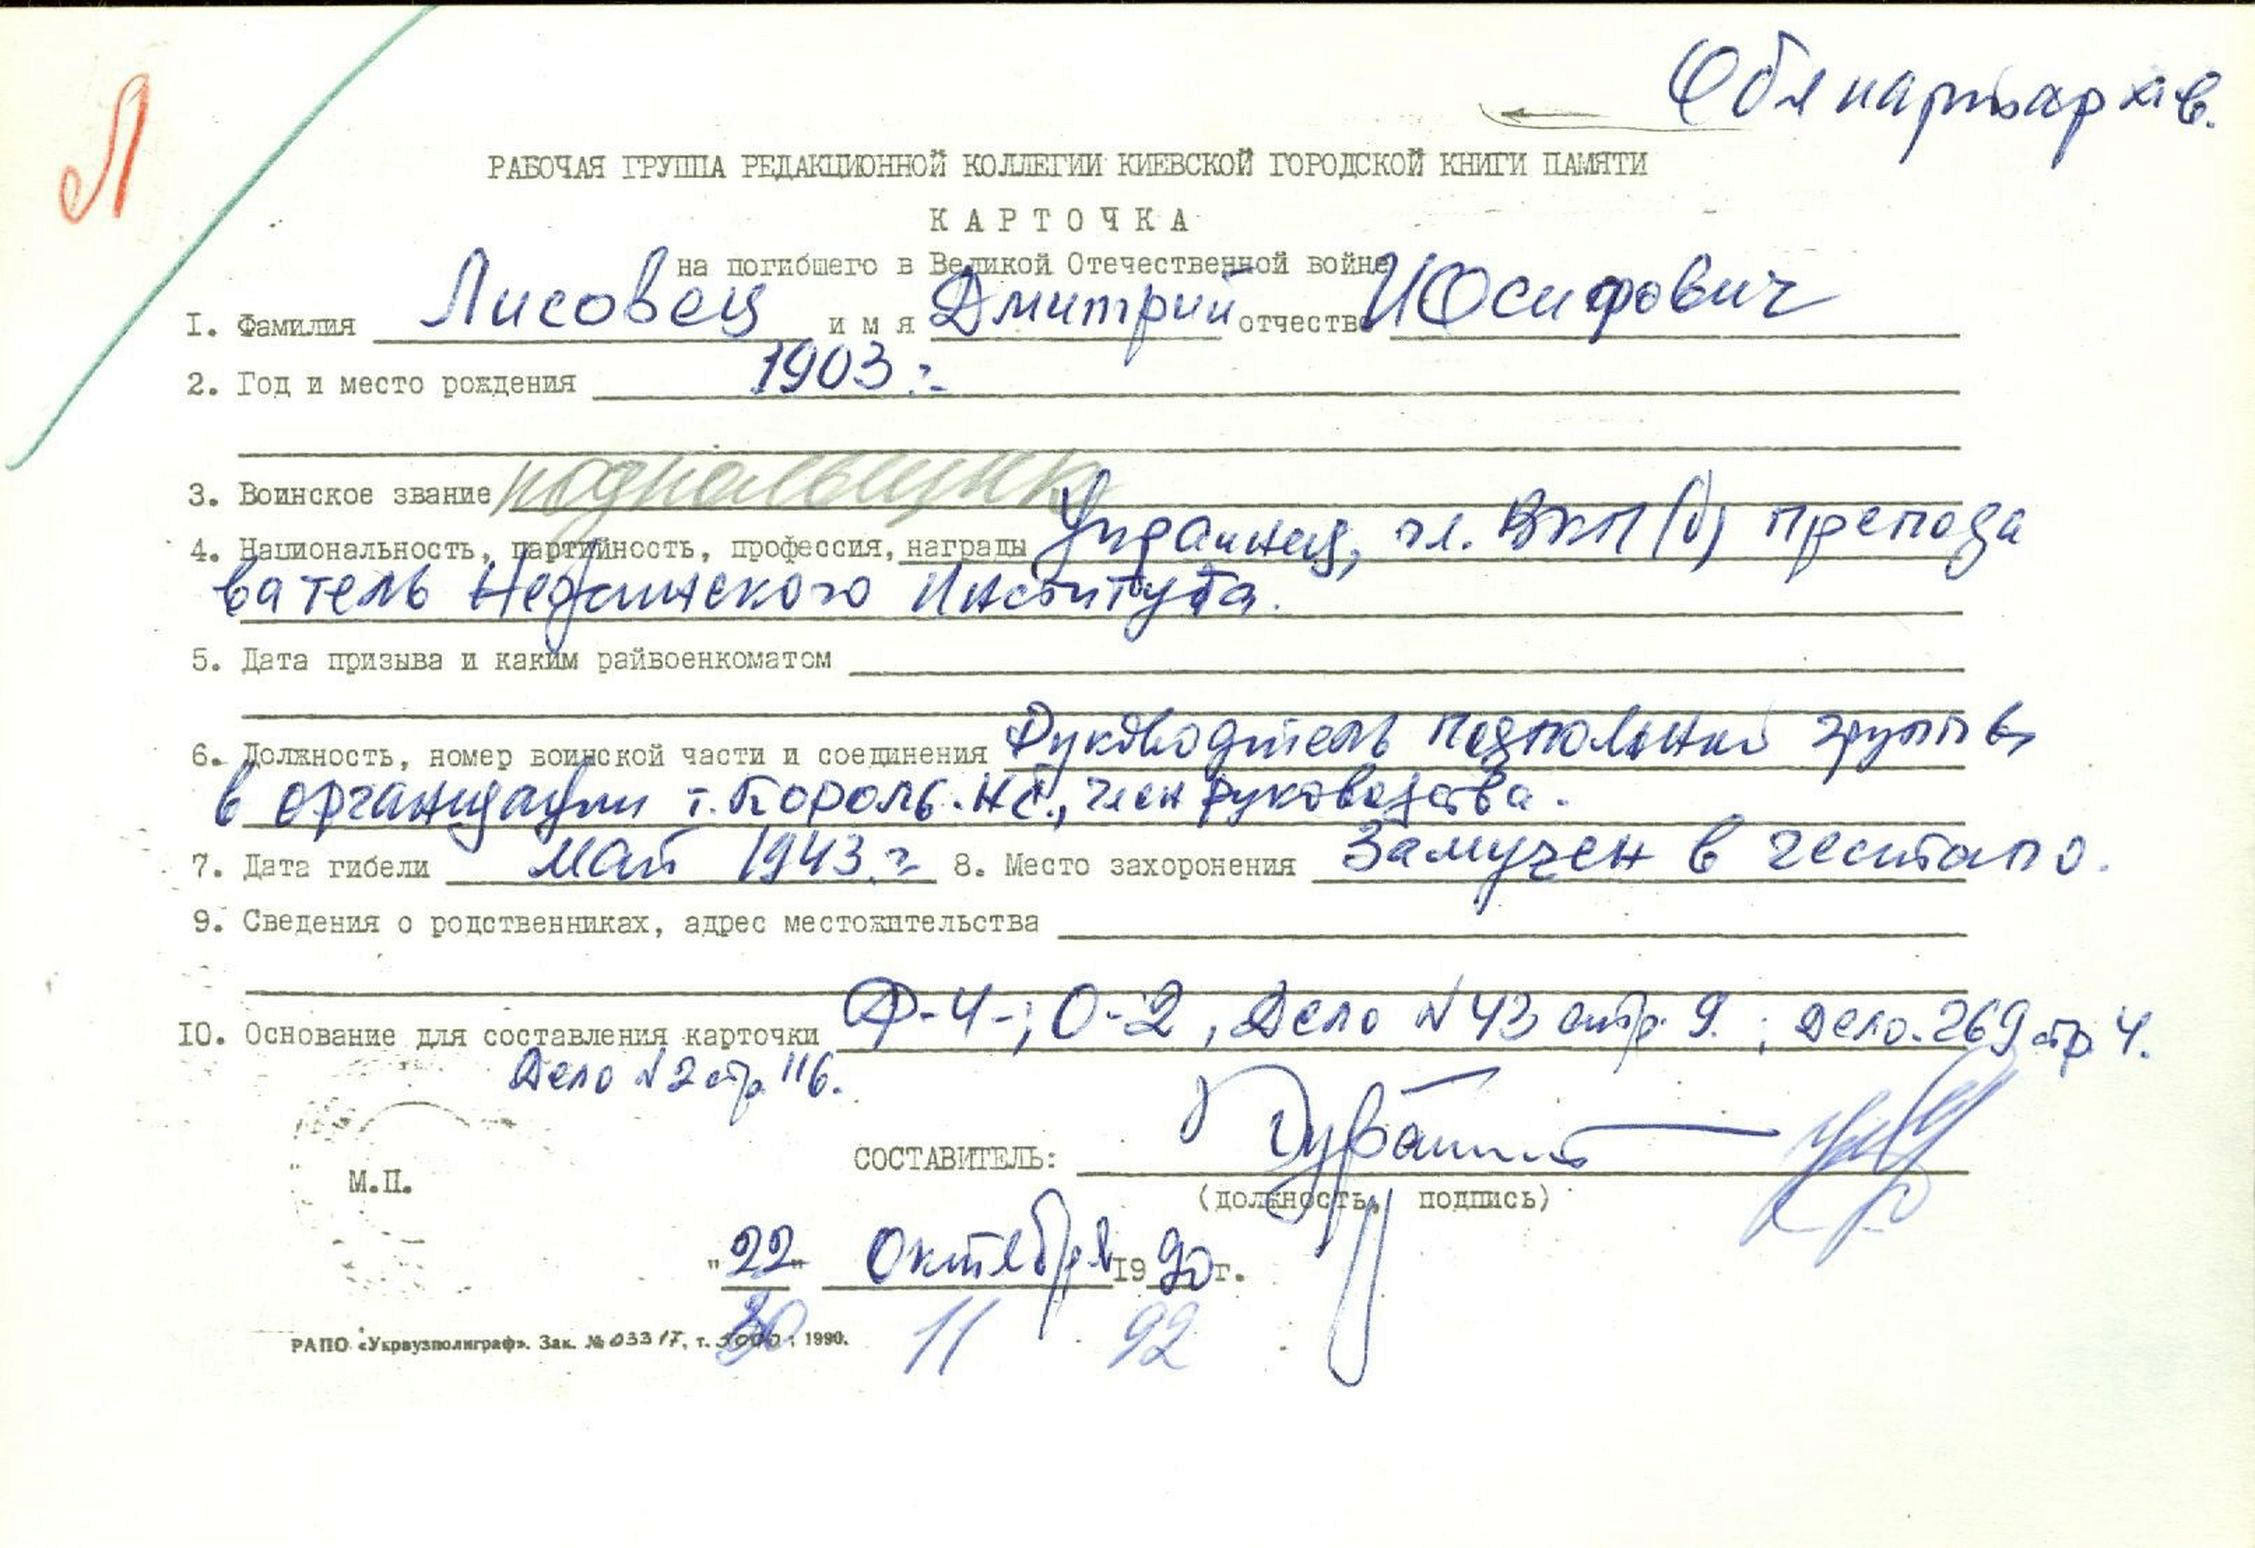 Л
Обл партархив.
РАБОЧАЯ ГРУППА РЕДАКЦИОННОЙ КОЛЛЕГИИ КИЕВСКОЙ ГОРОДСКОЙ КНИГИ ПАМЯТИ
К А Р Т О Ч К А
на погибшего в Великой Отечественной войне
I. Фамилия Лисовец и м я Дмитрий отчество Иосифович
2. Год и место рождения 1903 г.
3. Воинское звание подпольщик
4. Национальность, партийность, профессия, награды Украинец, чл. ВКП(б) препода
ватель Института.
5. Дата призыва и каким райвоенкоматом
6. Должность, номер воинской части и соединения Руководитель подпольной группы
в организации т. Король. член руководства.
7. Дата гибели май 1943 г. 8. Место захоронения Замучен в гестапо.
9. Сведения о родственниках, адрес местожительства
10. Основание для составления карточки Ф-4-; О-2, Дело №43 стр. 9. ; Дело. 269 стр. 4.
Дело №2 стр. 116.
М.П.
СОСТАВИТЕЛЬ:
(должность, подпись)
"22" Октября 1990г.
30 11 92
РАПО «Укрвузполиграф». Зак. № 03317, т. 5000. 1990.